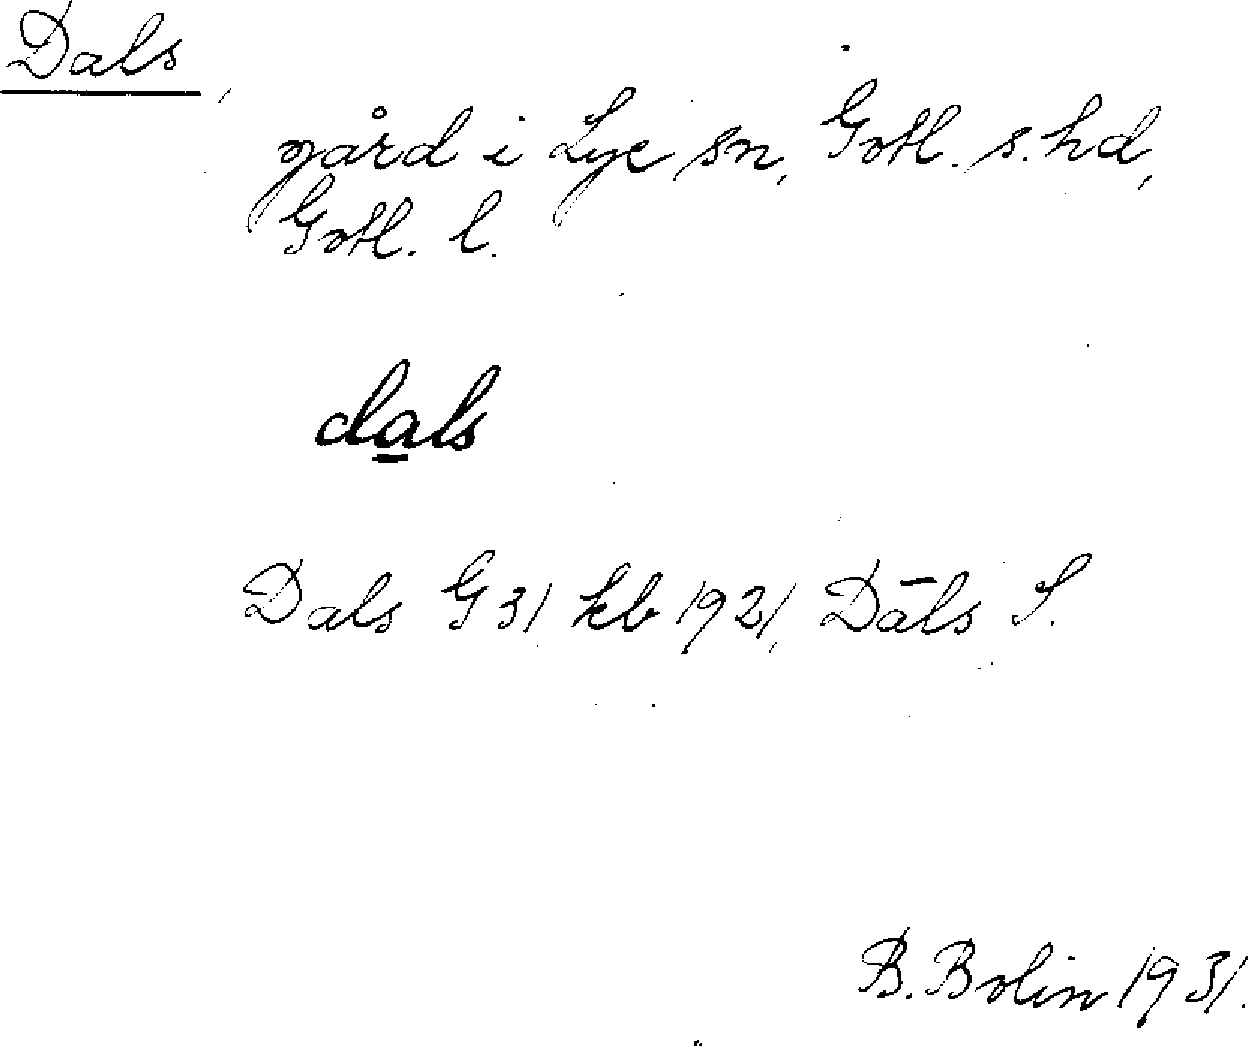 Dals,
gård i Lye sn, Gotl. s. hd,
Gotl. l.
dals
Dals G 31 kb 1921, Dāls S.
B. Bolin 1931.